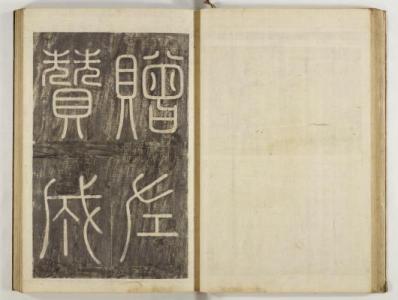 贈左
贊成